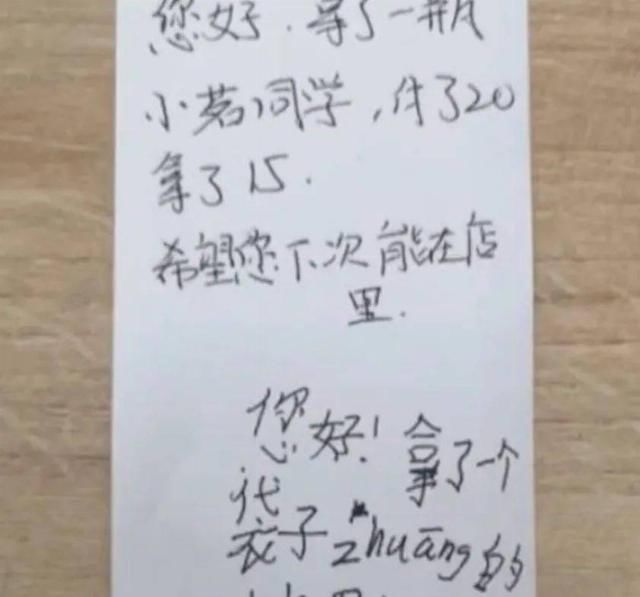 您好.拿了一瓶
小茗同学,付了20
拿了15.
希望您下次能在店
里.
您好!拿了一个
袋子zhuāng的